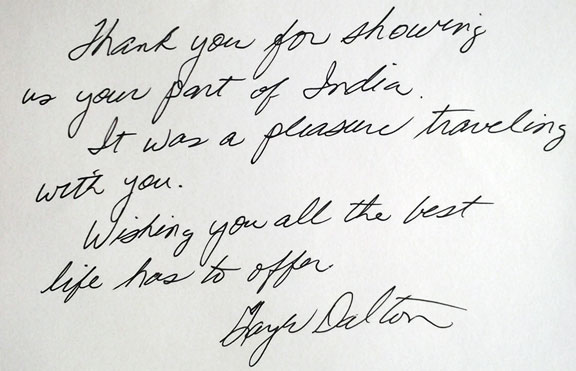 Thank you for showing
us your part of India.
It was a pleasure traveling
with you.
Wishing you all the best
life has to offer.
Faye Dalton